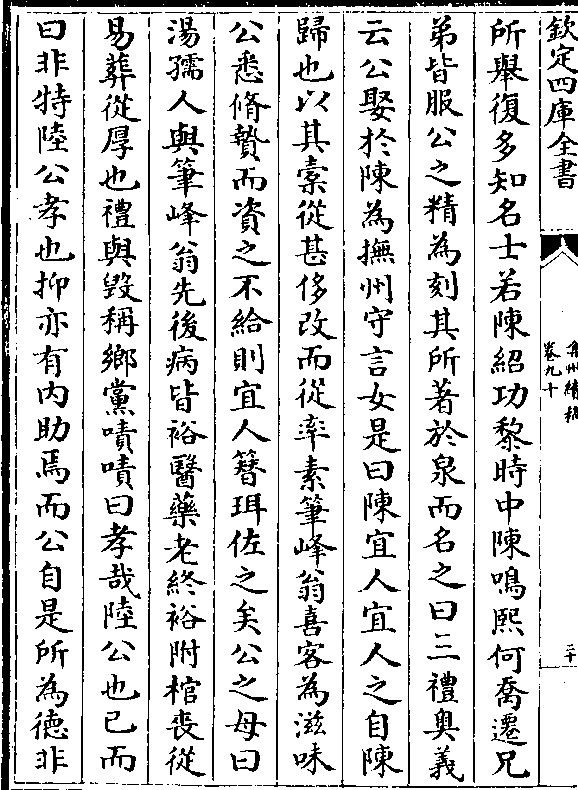 欽定四庫全書
弇州續稿
卷九十
三十
所舉復多知名士若陳紹功黎時中陳鳴熙何喬遷兄
弟皆服公之精為刻其所著於泉而名之曰三禮奧義
云公娶於陳為撫州守言女是曰陳宜人宜人之自陳
歸也以其橐從甚侈改而從率素筆峰翁喜客為滋味
公悉脩贄而資之不給則宜人簪珥佐之矣公之母曰
湯孺人與筆峰翁先後病皆裕醫藥老終裕附棺喪從
易葬從厚也禮與毀稱鄉黨嘖嘖曰孝哉陸公也已而
曰非特陸公孝也抑亦有內助焉而公自是所為德非